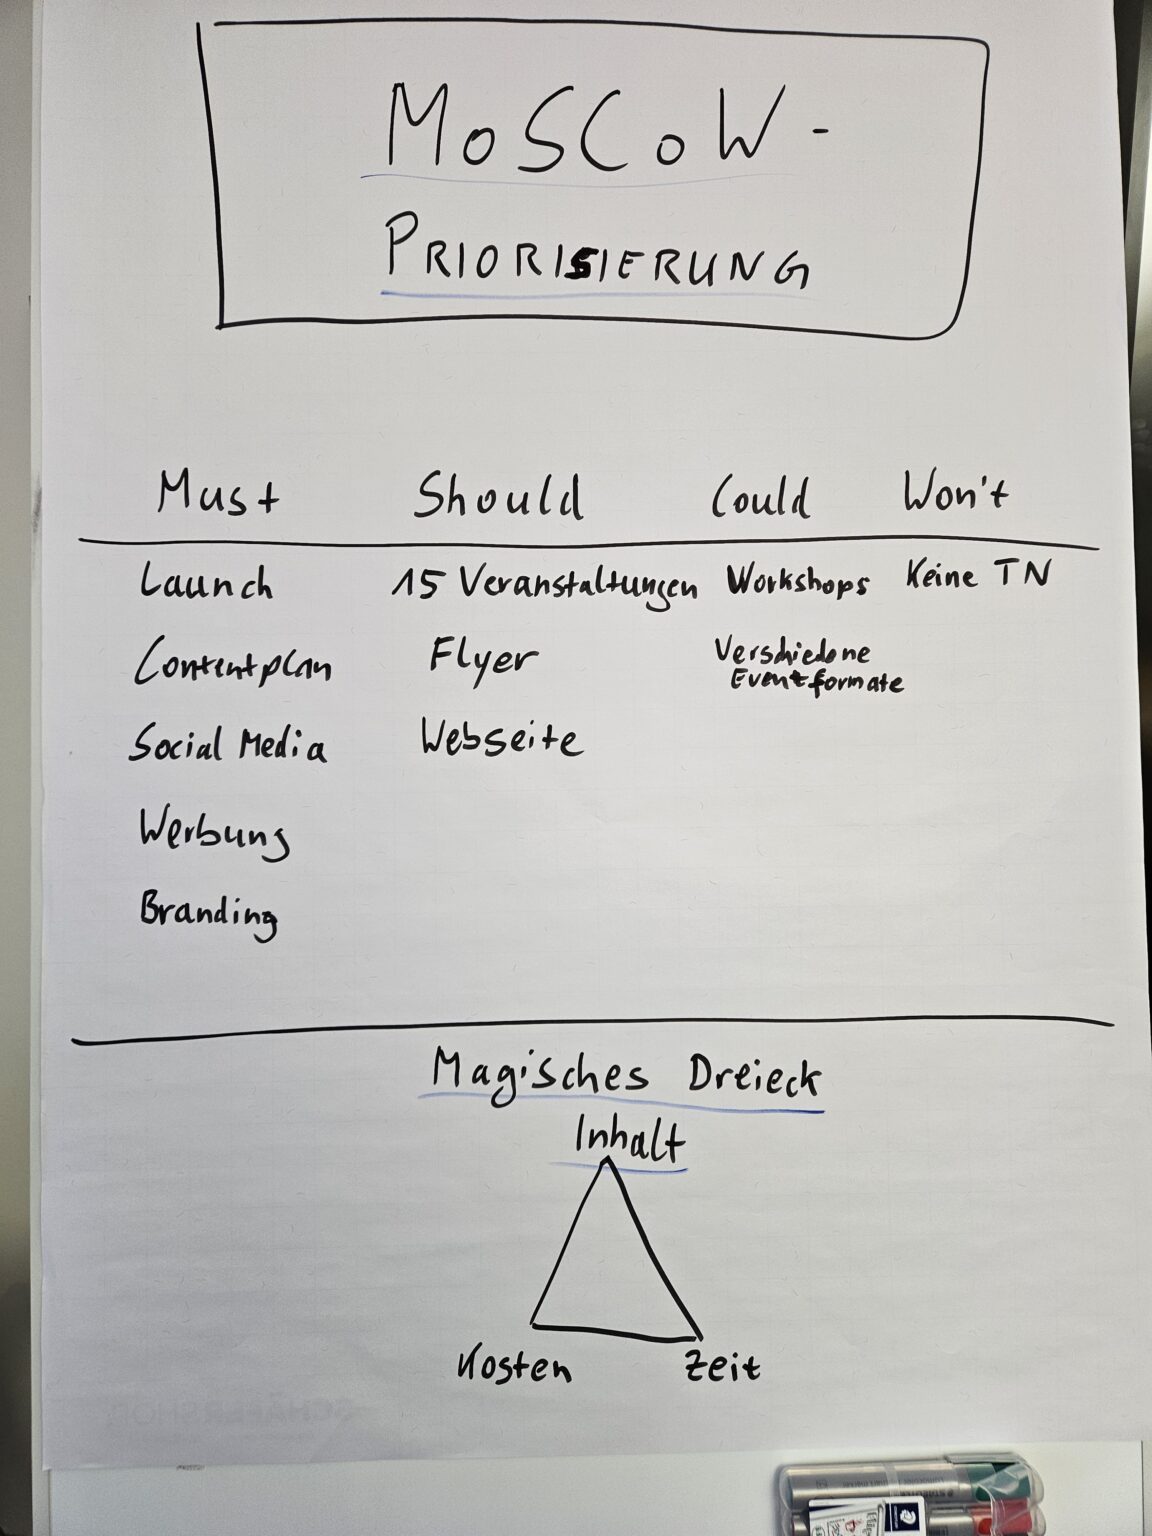 MoSCoW-
PRIORISIERUNG
Must Should Could Won't
Launch 15 Veranstaltungen Workshops Keine TN
Contentplan Flyer Verschiedene
Eventformate
Social Media Webseite
Werbung
Branding
Magisches Dreieck
Inhalt
Kosten Zeit
STAEDTLER